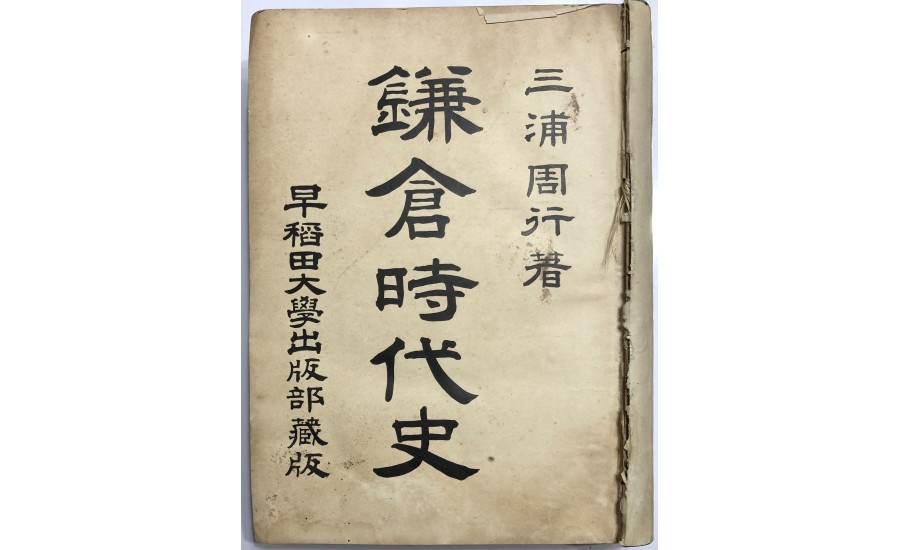 三浦周行著
鎌倉時代史
早稻田大學出版部藏版